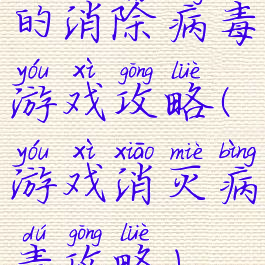 的消除病毒
yóu xì gōng lüè
游戏攻略(
yóu xì xiāo miè bìng
游戏消灭病
dú gōng lüè
毒攻略)